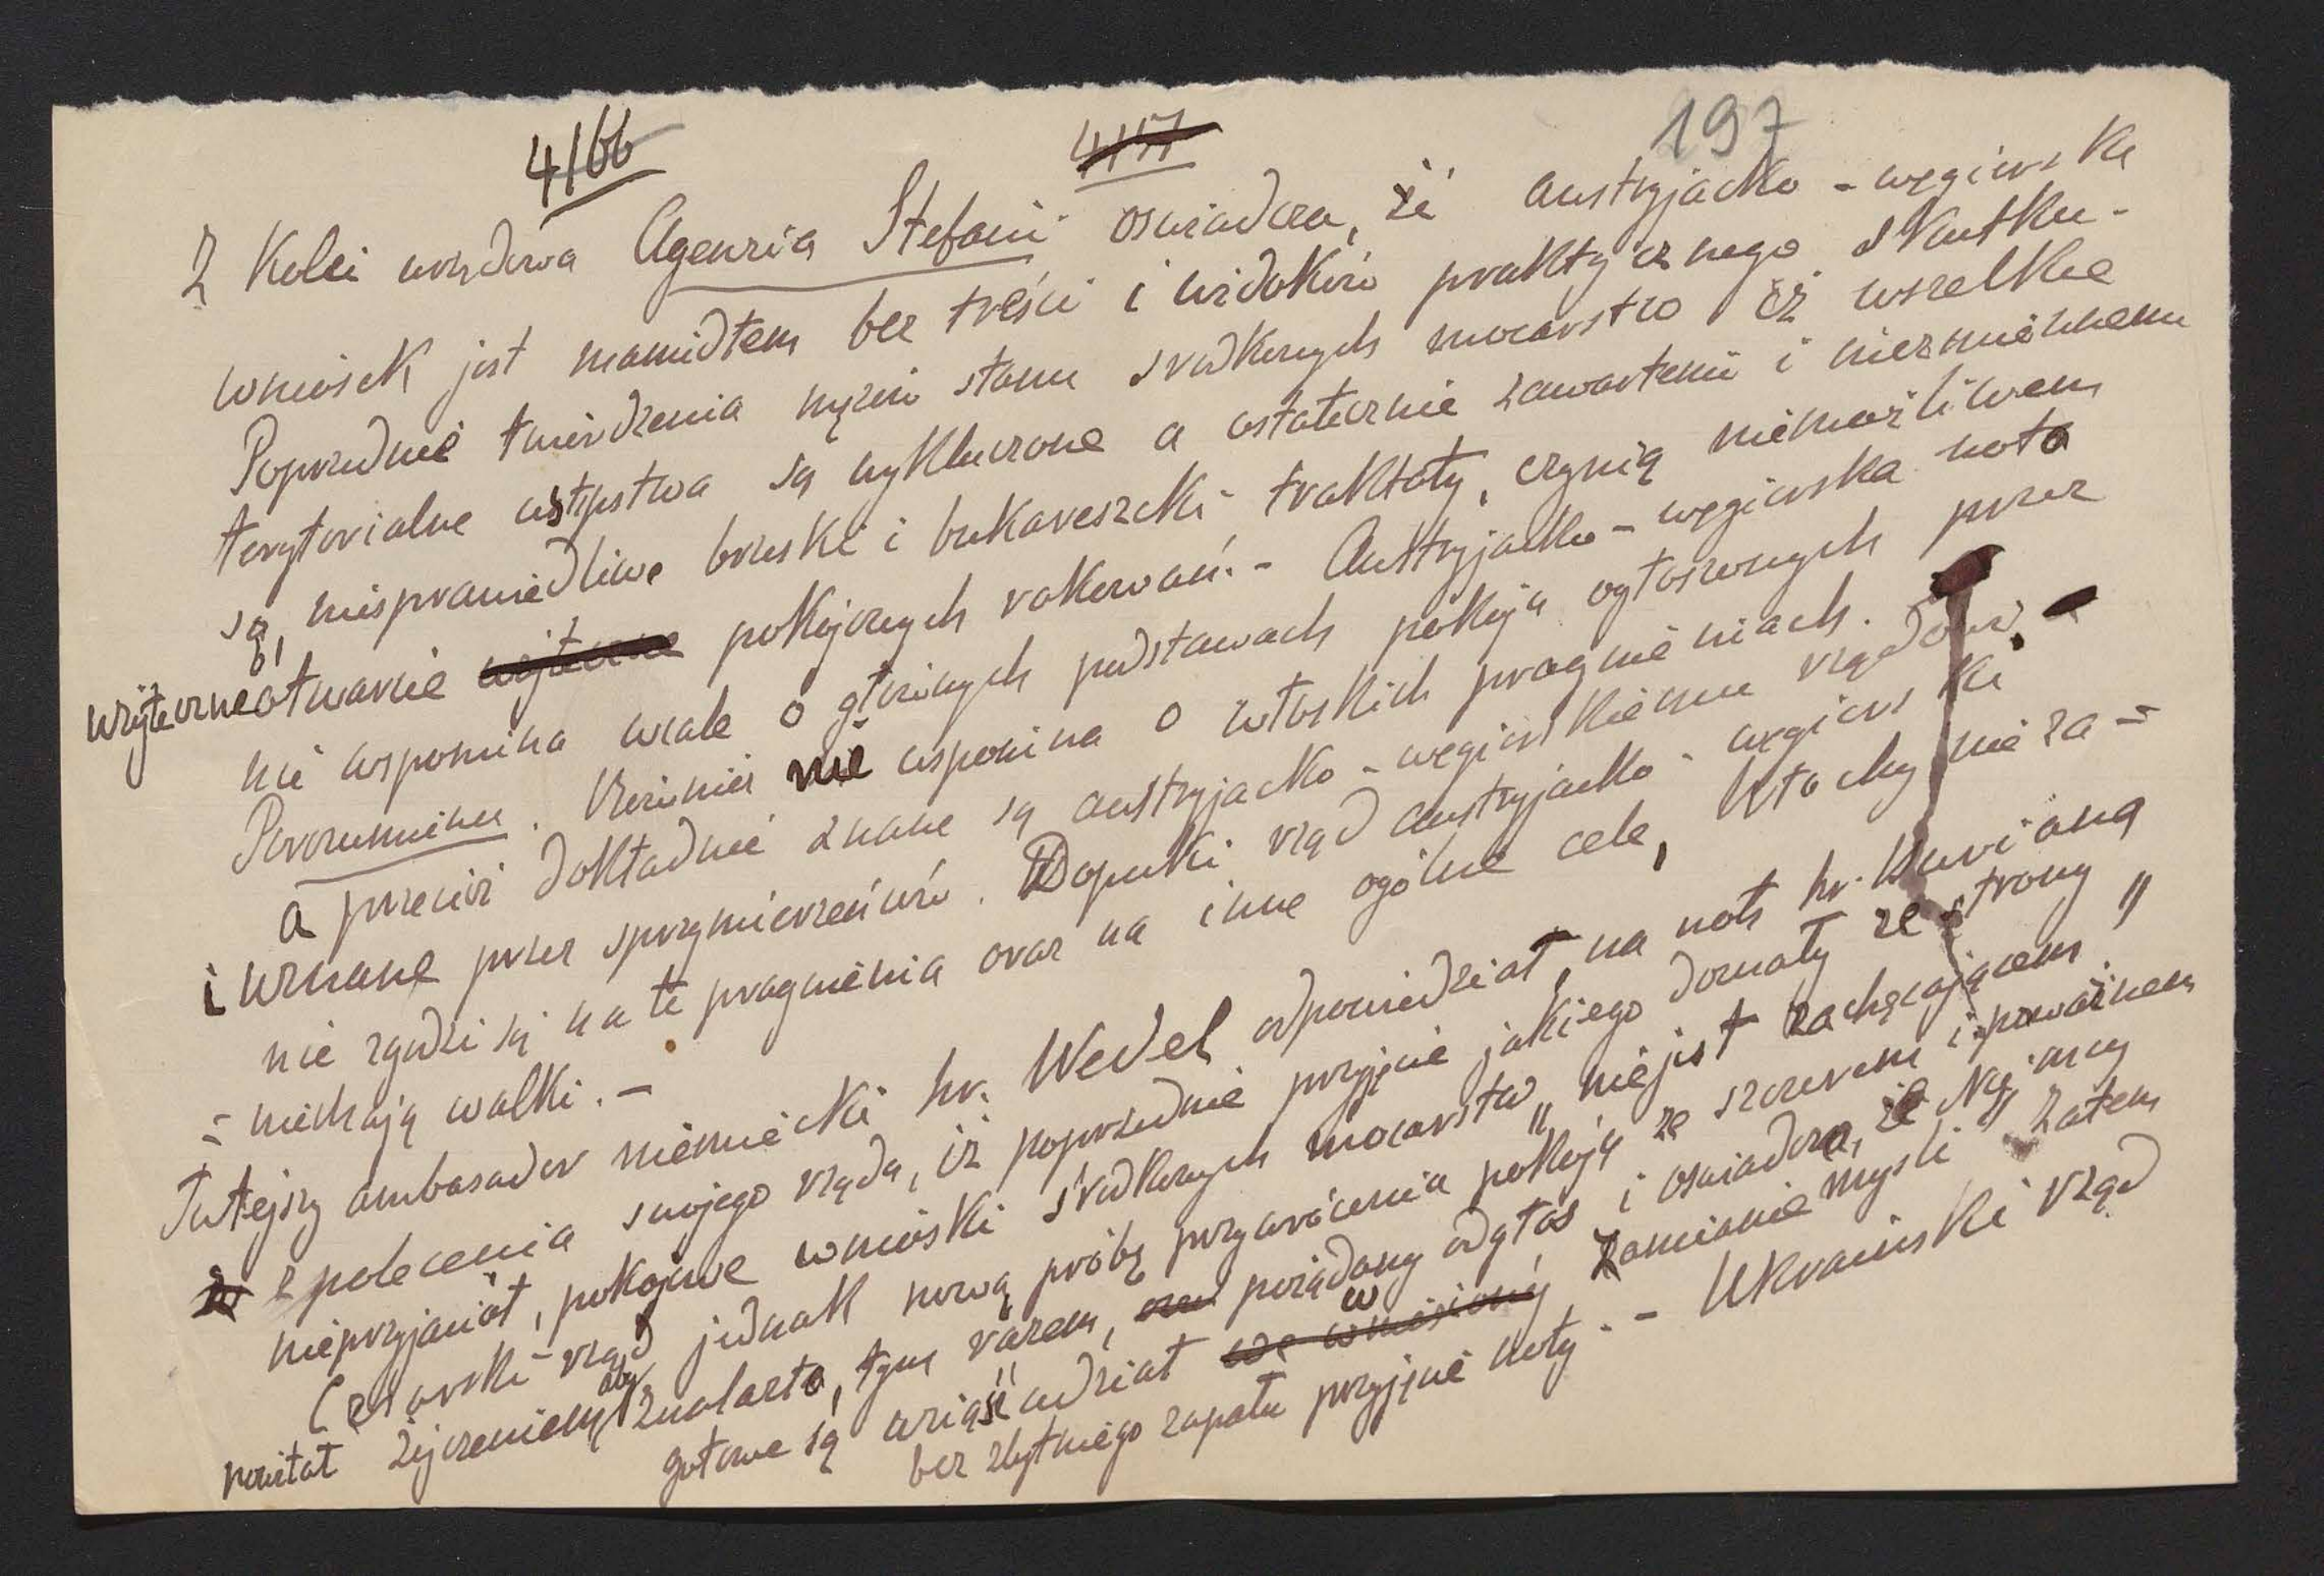 4166 4157 197
Z kolei urzędowa Agenzia Stefani oświadcza, że austryjacko-węgierska
wniosek jest mamidłem bez treści i widoków praktycznego skutku.
Poprzednie twierdzenia mężów stanu środkowych mocarstw iż wszelkie
terytorialne ustępstwa są wykluczone a ostatecznie zawartemi i niezmiennemi
są, niesprawiedliwe brzeski i bukareszcki traktaty, czynią niemożliwem
użyteczne otwarcie użyteczne pokojowych rokowań. - Austryjacko-węgierska nota
nie wspomina wcale o głównych podstawach pokoju ogłoszonych przez
Porozumienie. Również nie wspomina o włoskich pragnieniach.
a przecież dokładnie znane są austryjacko-węgierskiemu rządowi, -
i uznane przez sprzymierzeńców. Dopuki rząd austryjacko-węgierski
nie zgodzi się na te pragnienia oraz na inne ogólne cele, Włochy nie za-
-niechają walki. -
Tutejszy ambasador niemiecki hr. Wedel odpowiedział, na notę hr. Buriana
z polecenia swojego rządu, iż poprzednie przyjęcie jakiego doznały ze strony
nieprzyjaciół, pokojowe wnioski środkowych mocarstw „nie jest zachęcającem"
Cesarski rząd jednak nową próbę przywrócenia pokoju ze szczerem i poważnem
powitał życzeniem, aby znalazła, tym razem, pożądany odgłos i oświadcza, że Niemcy
gotowe są wziąść udział we wniesionej w zamianie myśli. Zatem
bez zbytniego zapału przyjęcie noty. - Ukraiński rząd